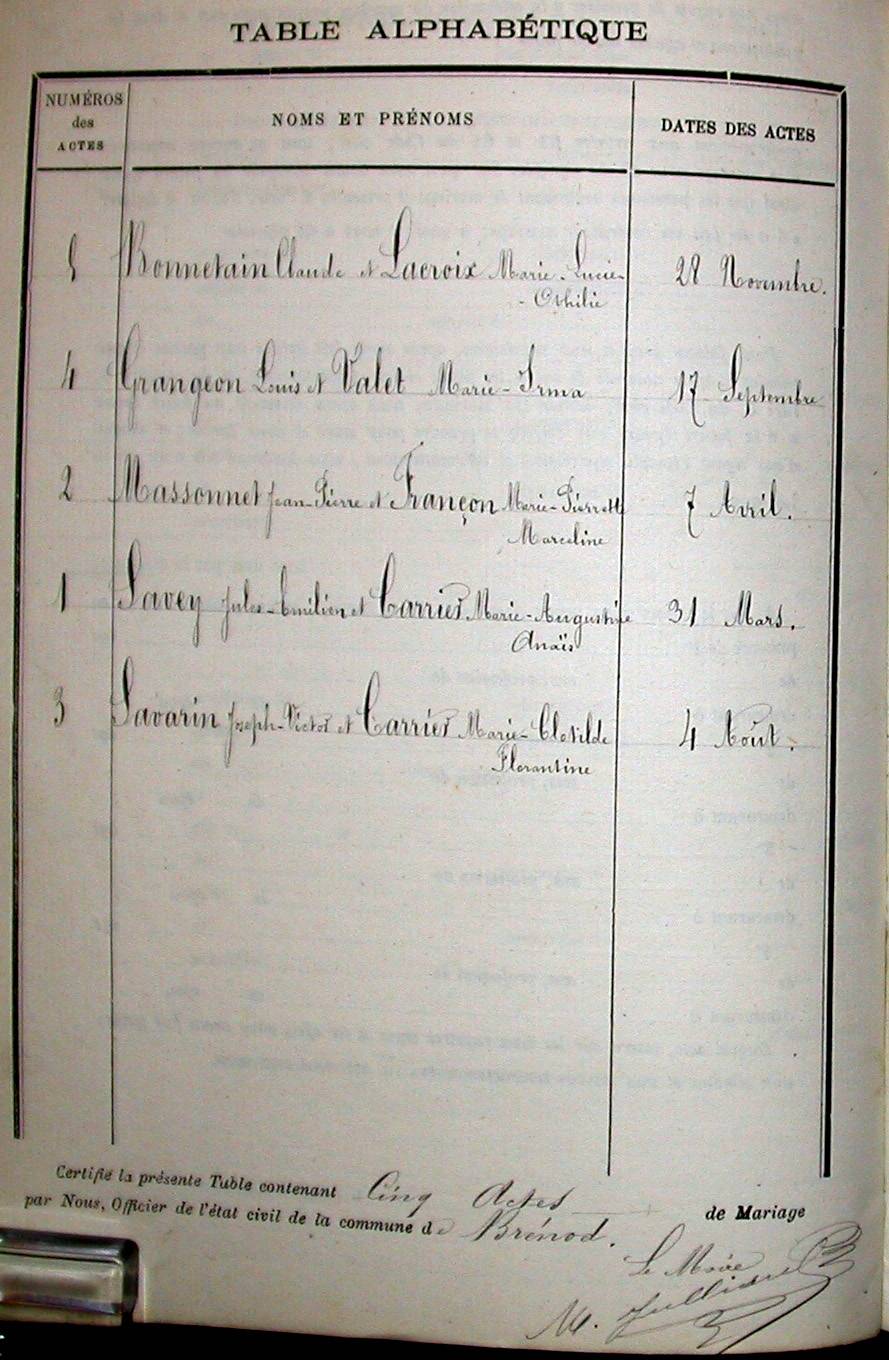 TABLE ALPHABÉTIQUE
NUMÉROS
des
ACTES
NOMS ET PRÉNOMS
DATES DES ACTES
5 Bonnetain Claude et Lacroix Marie-Lucie- 28 Novembre.
- Othilie
4 Grangeon Louis et Valet Marie-Irma 17 Septembre
2 Massonnet Jean-Pierre et Françon Marie-Pierrette 7 Avril.
Marceline
1 Savey Jules-Emilien et Carrier Marie-Augustine 31 Mars.
Anaïs
3 Savarin Joseph-Victor et Carrier Marie-Clotilde 4 Août.
Florantine
Certifié la présente Table contenant Cinq Actes de Mariage
par Nous, Officier de l'état civil de la commune de Brénod.
Le Maire
M.